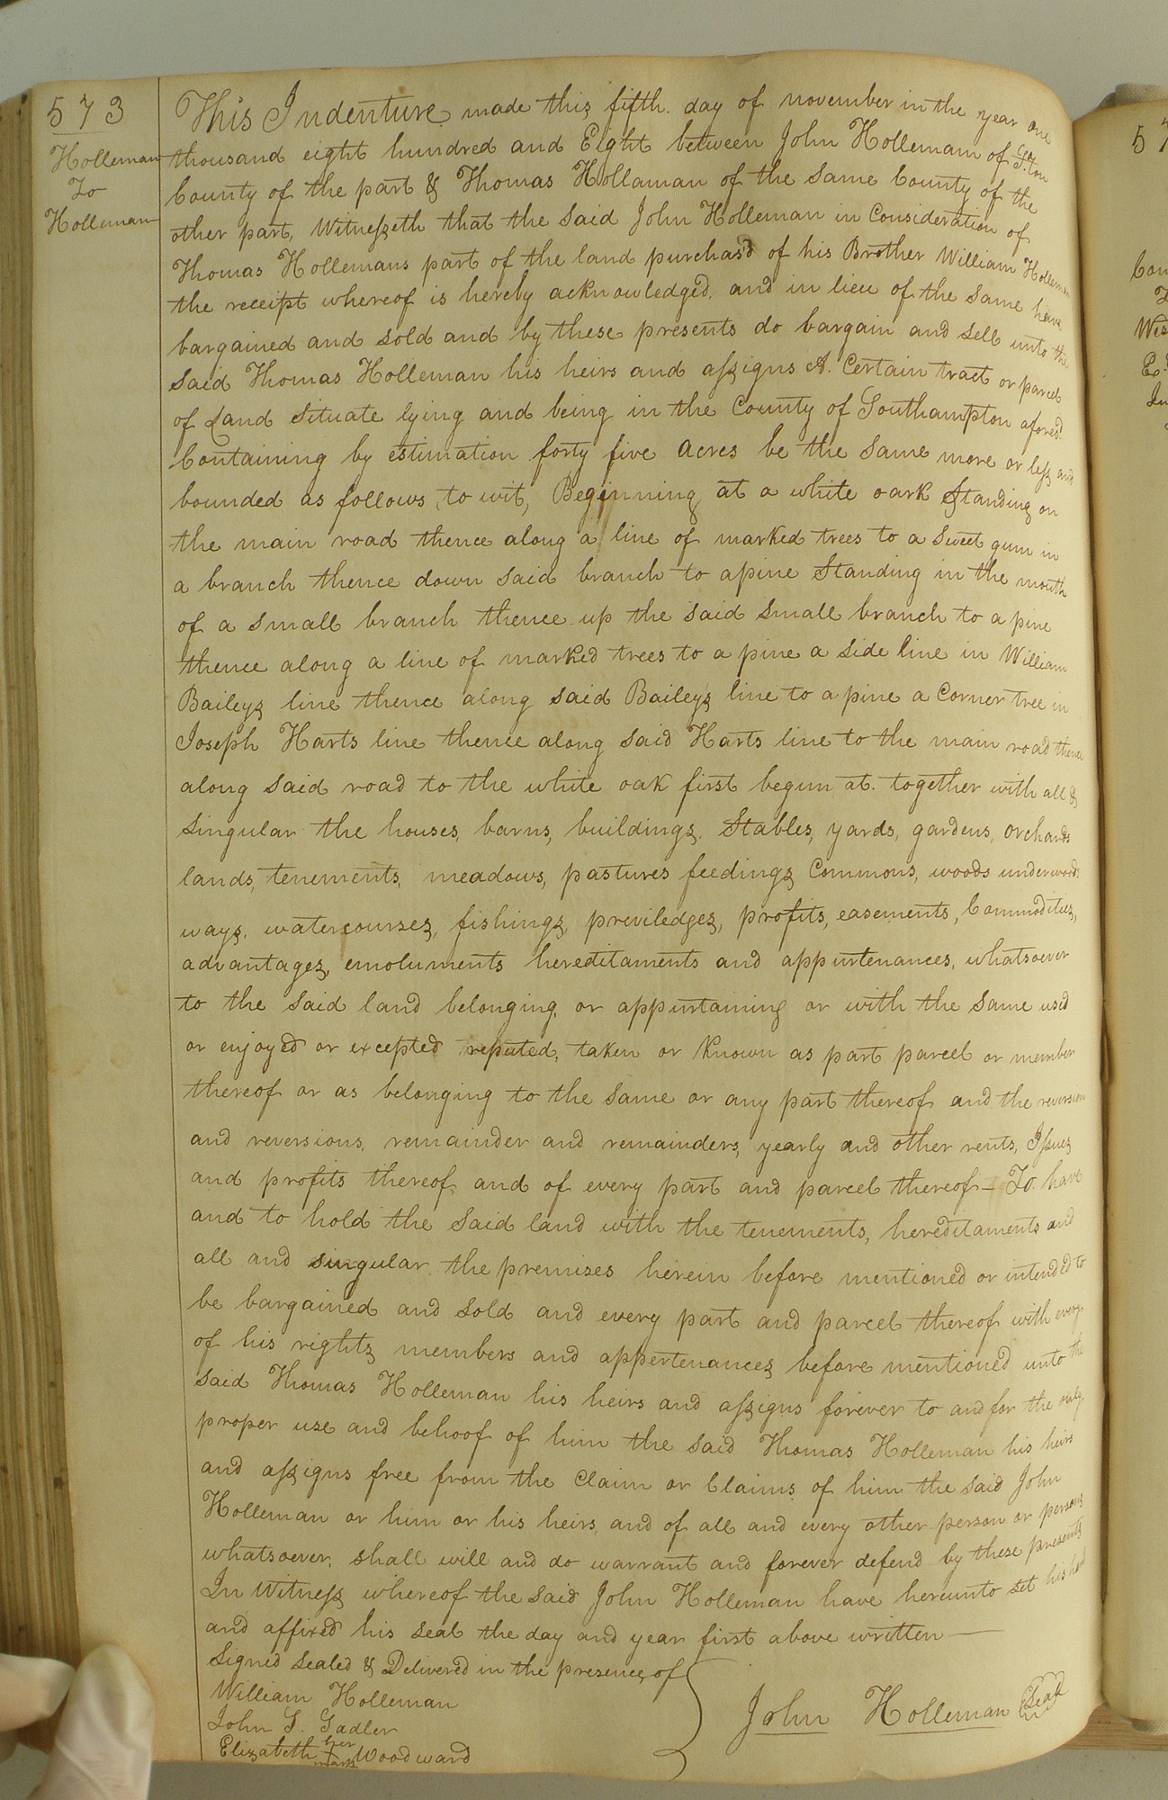 573
Holleman
To
Holleman
This Indenture made this fifth day of november in the year one
thousand eight hundred and Eight between John Holleman of
County of the part & Thomas Hollaman of the same County of the
other part, Witnesseth that the said John Holleman in Consideration of
Thomas Hollemans part of the land purchasd of his Brother William Holleman
the receipt whereof is hereby acknowledged, and in lieu of the same have
bargained and sold and by these presents do bargain and sell unto the
said Thomas Holleman his heirs and assigns A. Certain tract or parcel
of Land situate lying and being in the County of Southampton aforesd
Containing by estimation forty five acres be the same more or less and
bounded as follows, to wit, Beginning at a white oark Standing on
the main road thence along a line of marked trees to a Sweet gum in
a branch thence down said branch to apine Standing in the mouth
of a small branch thence up the said small branch to a pine
thence along a line of marked trees to a pine a side line in William
Baileys line thence along said Baileys line to a pine a Corner tree in
Joseph Harts line thence along said Harts line to the main road thence
along said road to the white oak first begun at. together with all &
Singular the houses, barns, buildings, Stables, yards, gardens, orchards
lands, tenements, meadows, pastures feedings Commons, woods underwoods
ways, watercourses, fishings, priviledges, profits, easements, Commodities,
advantages, emoluments hereditaments and appurtenances, whatsoever
to the said land belonging or appurtaining or with the same used
or enjoyed or excepted reputed, taken or known as part parcel or member
thereof or as belonging to the same or any part thereof and the reversion
and reversions, remainder and remainders, yearly and other rents, Issues
and profits thereof and of every part and parcel thereof — To have
and to hold the said land with the tenements, hereditaments and
all and singular the premises herein before mentioned or intended to
be bargained and sold and every part and parcel thereof with every
of his rights members and appertenances before mentioned unto the
said Thomas Holleman his heirs and assigns forever to and for the only
proper use and behoof of him the said Thomas Holleman his heirs
and assigns free from the Claim or Claims of him the said John
Holleman or him or his heirs, and of all and every other person or persons
whatsoever, shall will and do warrant and forever defend by these presents
In Witness whereof the said John Holleman have hereunto set his hand
and affixed his seal the day and year first above written —
Signed Sealed & Delivered in the presence of
William Holleman
John S. Sadler
her
Elizabeth + Woodward
mark
John Holleman Seal